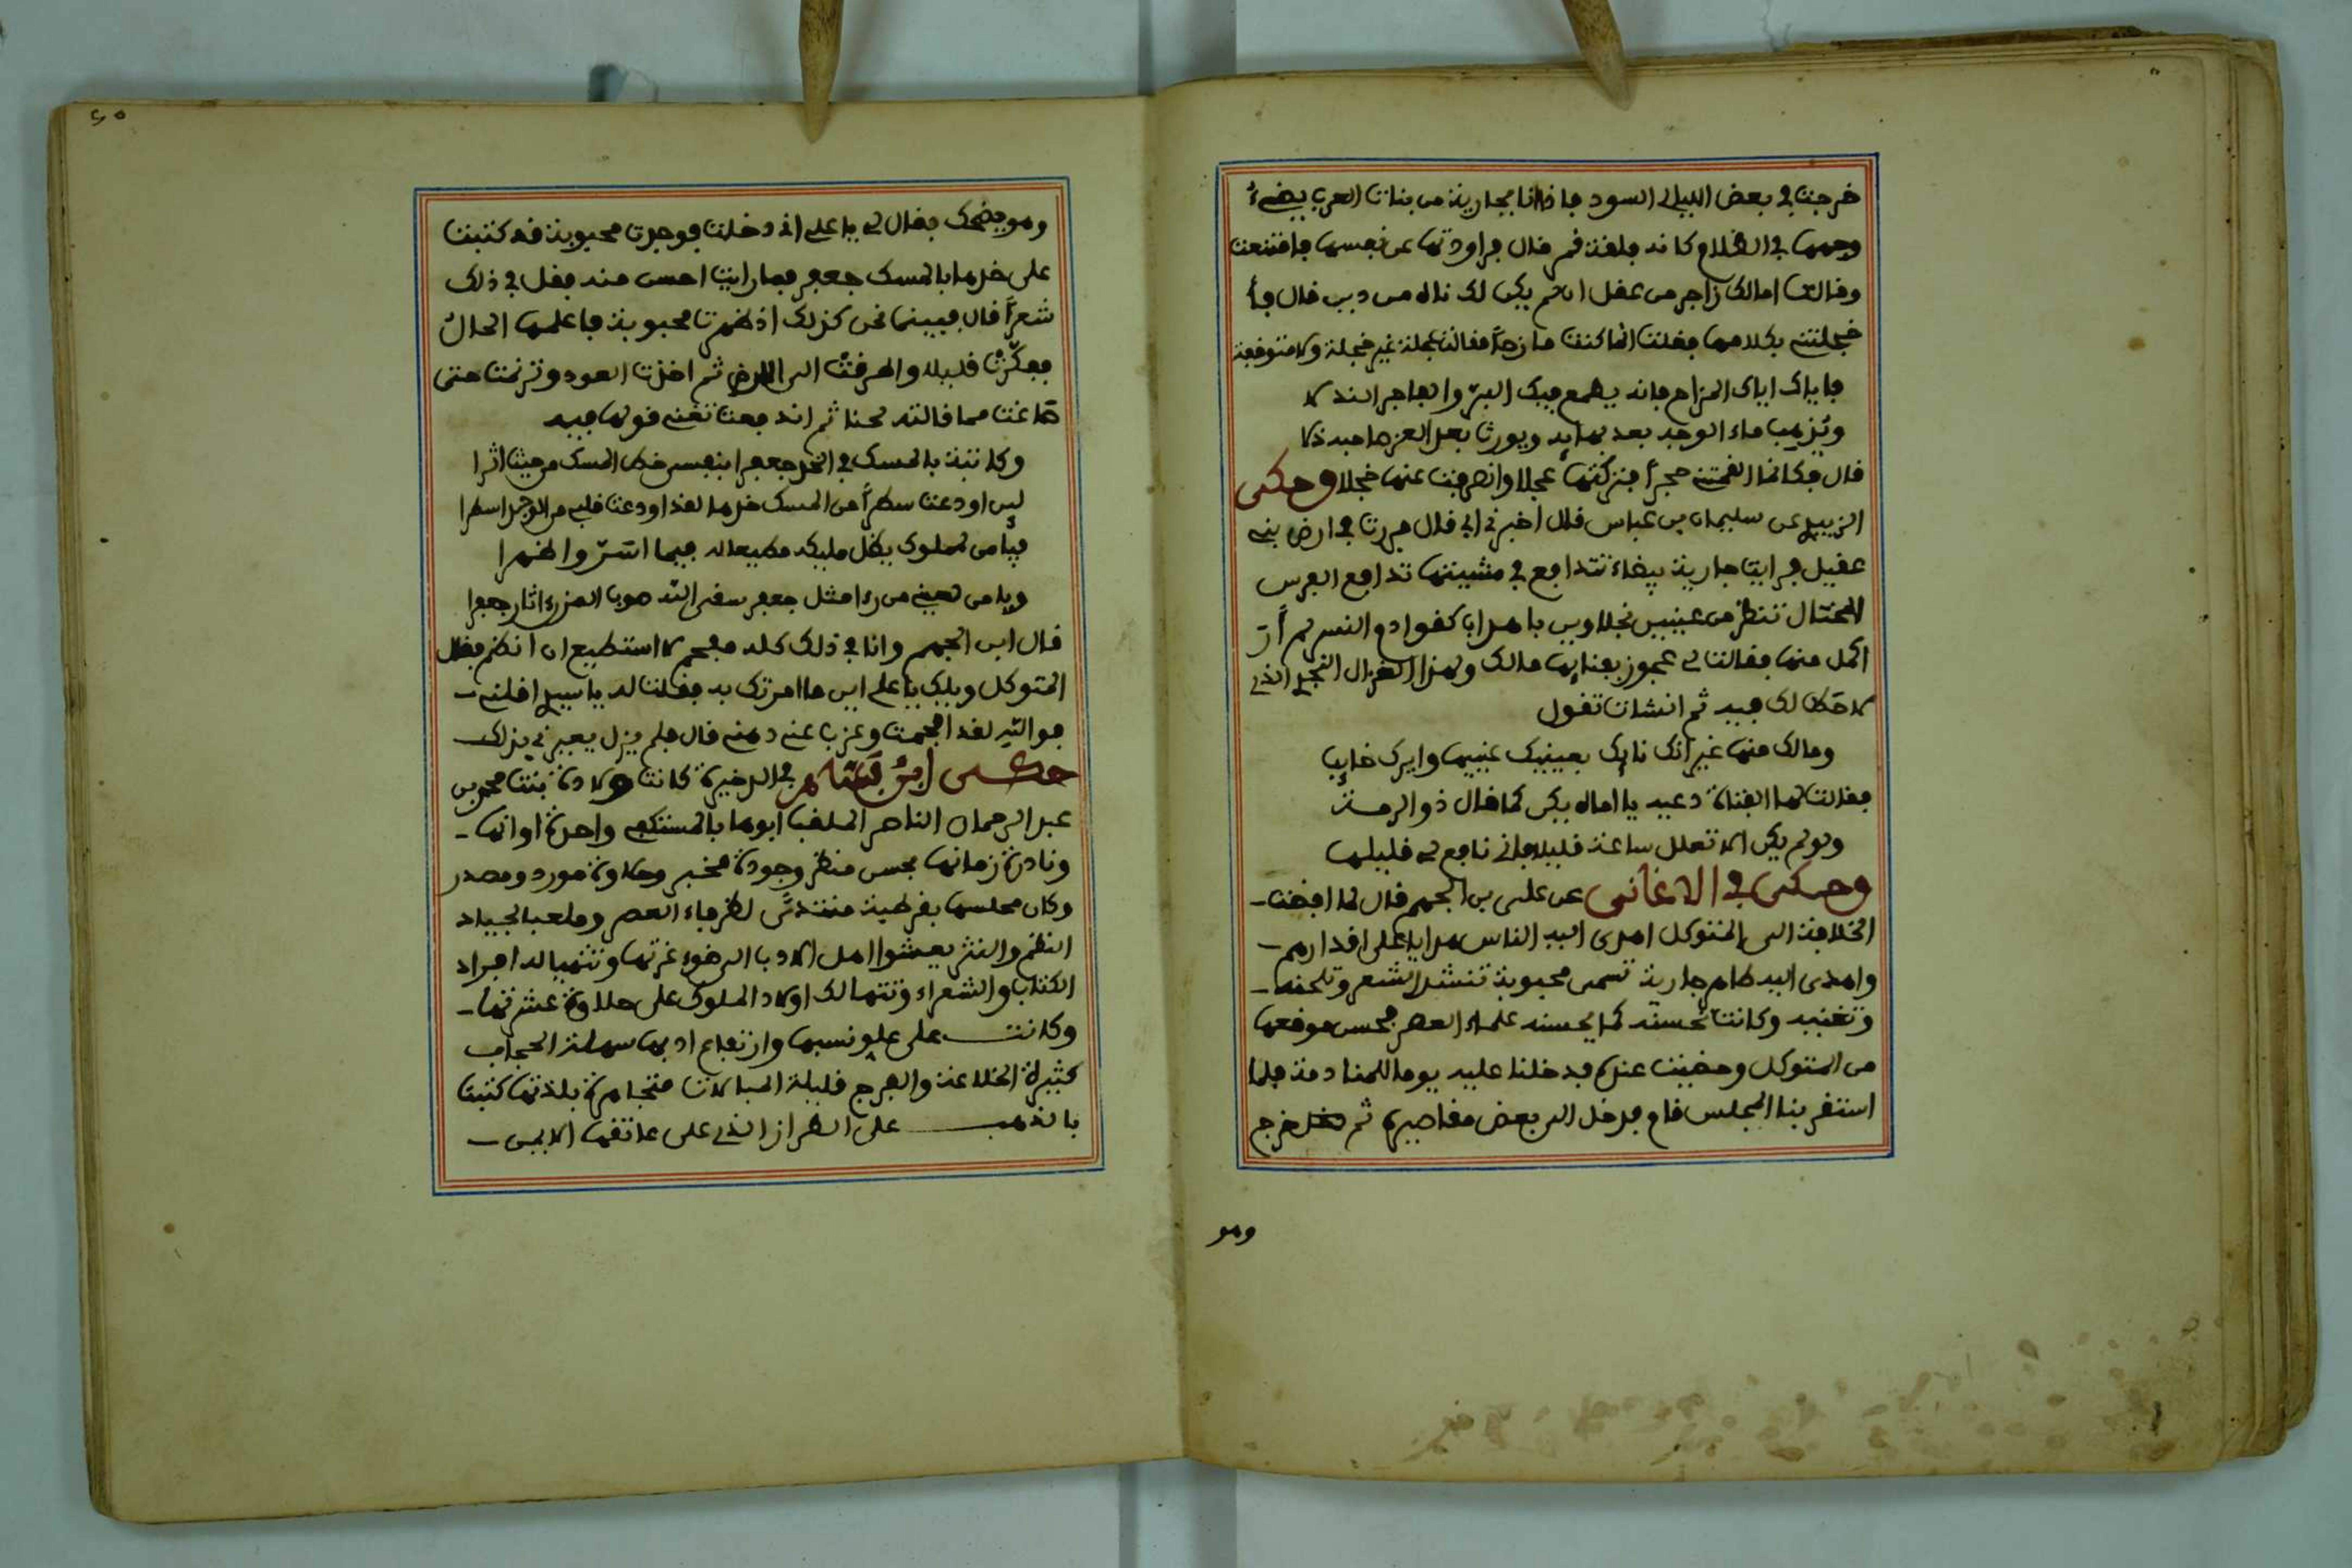 خرجت في بعض الليالي السود فاذا انا بجارية من بنات العرب يضيء
وجهها في الظلام كانه فلقة قمر قال فراودتها عن نفسها فامتنعت
وقالت امالك زاجر من عقل ان لم يكن لك ناه من دين قال فأ
خجلتني بكلامها فقلت انما كنت مازحاً فقالت خجلة غير خجلة ولا متوقعة
فاياك اياك المزاح فانه يطمع فيك البرّ والفاجر النذلا
ويُذهب ماء الوجه بعد بهايه ويورث بعد العز صاحبه ذلا
قال فكانما القمتني حجراً فتركتها عجلا وانصرفت عنها خجلا وحكى
الزبير عن سليمان بن عباس قال اخبرني ابي قال مررت في ارض بني
عقيل فرايت جارية بيضاء تتدافع في مشيتها تدافع الفرس
المختال تنظر من عينين نجلاوين باهداب كقوادم النسر لم أرَ
اكمل منها فقالت لي عجوز بفنايها مالك ولهذا الغزال النجدي الذي
لا حظ لك فيه ثم انشات تقول
ومالك منها غير انك نايك بعينيك عينيها وايرك خايب
فقالت لها الفتاة دعيه يا اماه يكن كما قال ذو الرمة
ولو لم يكن الا تعلل ساعة قليلا فاني نافع لي قليلها
وحكى في الاغاني عن على بن الجهم قال لما افضت
الخلافة الى المتوكل اهدى اليه الناس هدايا على اقدارهم
واهدى اليه طاهر جارية تسمى محبوبة تنشد الشعر وتلحنه
وتغنيه وكانت تحسنه كما يحسنه علماء العصر فحسن موقعها
من المتوكل وحضيت عنده فدخلنا عليه يوما للمنادمة فلما
استقر بنا المجلس قام فدخل الى بعض مقاصيره ثم خرج
وهو
وهو يضحك فقال لي يا علي اني دخلت فوجدت محبوبة قد كتبت
على خدها بالمسك جعفر فما رايت احسن منه فقل في ذلك
شعراً قال فبينما نحن كذلك اذ ظهرت محبوبة فاعلمها الحال
ففكّرتْ قليلا واطرقتْ الى الارض ثم اخذت العود وترنمت حتى
صاغت مما قالته لحنا ثم اندفعت تغني قولها فيه
وكاتبة بالمسك في الخد جعفرا بنفسي خط المسك من حيث اثرا
لين اودعت سطراً من المسك خدها لقد اودعت قلبي من الوجد اسطرا
فيا من لمملوك يظل مليكه مطيعا له فيما اسرّ واظهرا
ويا من لعيني من راء مثل جعفر سقى الله صوب المزن اثار جعفرا
قال ابن الجهم وانا في ذلك كله مفحم لا استطيع ان انظم فقال
المتوكل ويلك يا علي اين ما امرتك به فقلت له يا سيدي اقلني
فوالله لقد افحمت وعزب عني ذهني قال فلم يزل يعيرني بذلك
حكى ابن بسّام في الذخيرة كانت ولادة بنت محمد بن
عبد الرحمان الناصر الملقب ابوها بالمستكفي واحدة اوانها
ونادرة زمانها بحسن منظر وجودة مخبر وحلاوة مورد ومصدر
وكان مجلسها بقرطبة منتدىً لظرفاء العصر وملعبا لجياد
النظم والنثر يعشوا اهل الادب الى ضوء غرتها وتتهيا له افراد
الكتاب والشعراء وتتهالك اولاد الملوك على حلاوة عشرتها
وكانت على علو نسبها وارتفاع ادبها سهلة الحجاب
كثيرة الخلاعة والهرج قليلة المبالات متجاهرة بلذتها كتبت
بالذهب على الطراز الذي على عاتقها الايمن